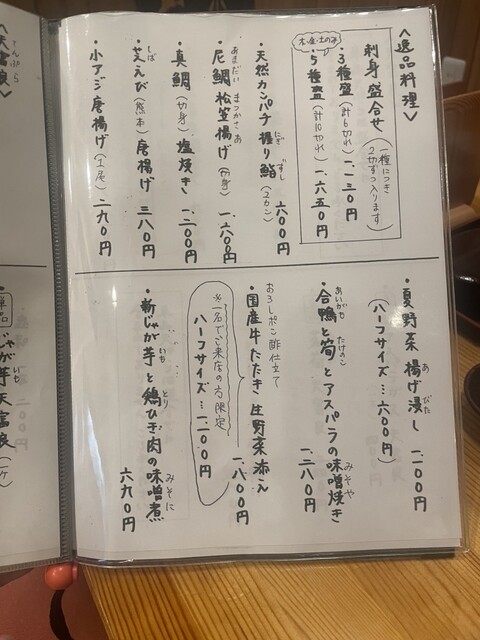 ＜逸品料理＞
刺身盛合せ（一種につき２切ずつ入ります）
・３種盛（計６切れ）一、一三〇円
木・金・土のみ
・５種盛（計10切れ）一、六五〇円
・天然カンパチ握り鮨（２カン）六〇〇円
にぎ ずし
・尼鯛松笠揚げ（切身）一、六〇〇円
あまだい まつかさあ
・真鯛（切身）塩焼き 一、二〇〇円
・芝えび（熊本）唐揚げ 三八〇円
しば
・小アジ唐揚げ（１尾）二九〇円
・夏野菜揚げ浸し 一、二〇〇円
あ びた
（ハーフサイズ…六〇〇円）
・合鴨と筍とアスパラの味噌焼き 一、二八〇円
あいがも たけのこ みそや
おろしポン酢仕立て
・国産牛たたき 生野菜添え 一、八〇〇円
※一名でご来店の方限定
ハーフサイズ…一、一〇〇円
・新じゃが芋と鶏ひき肉の味噌煮 六九〇円
いも とり みそに
＜天富良＞
てんぷら
単品
じゃが芋天富良（一ケ）
いも